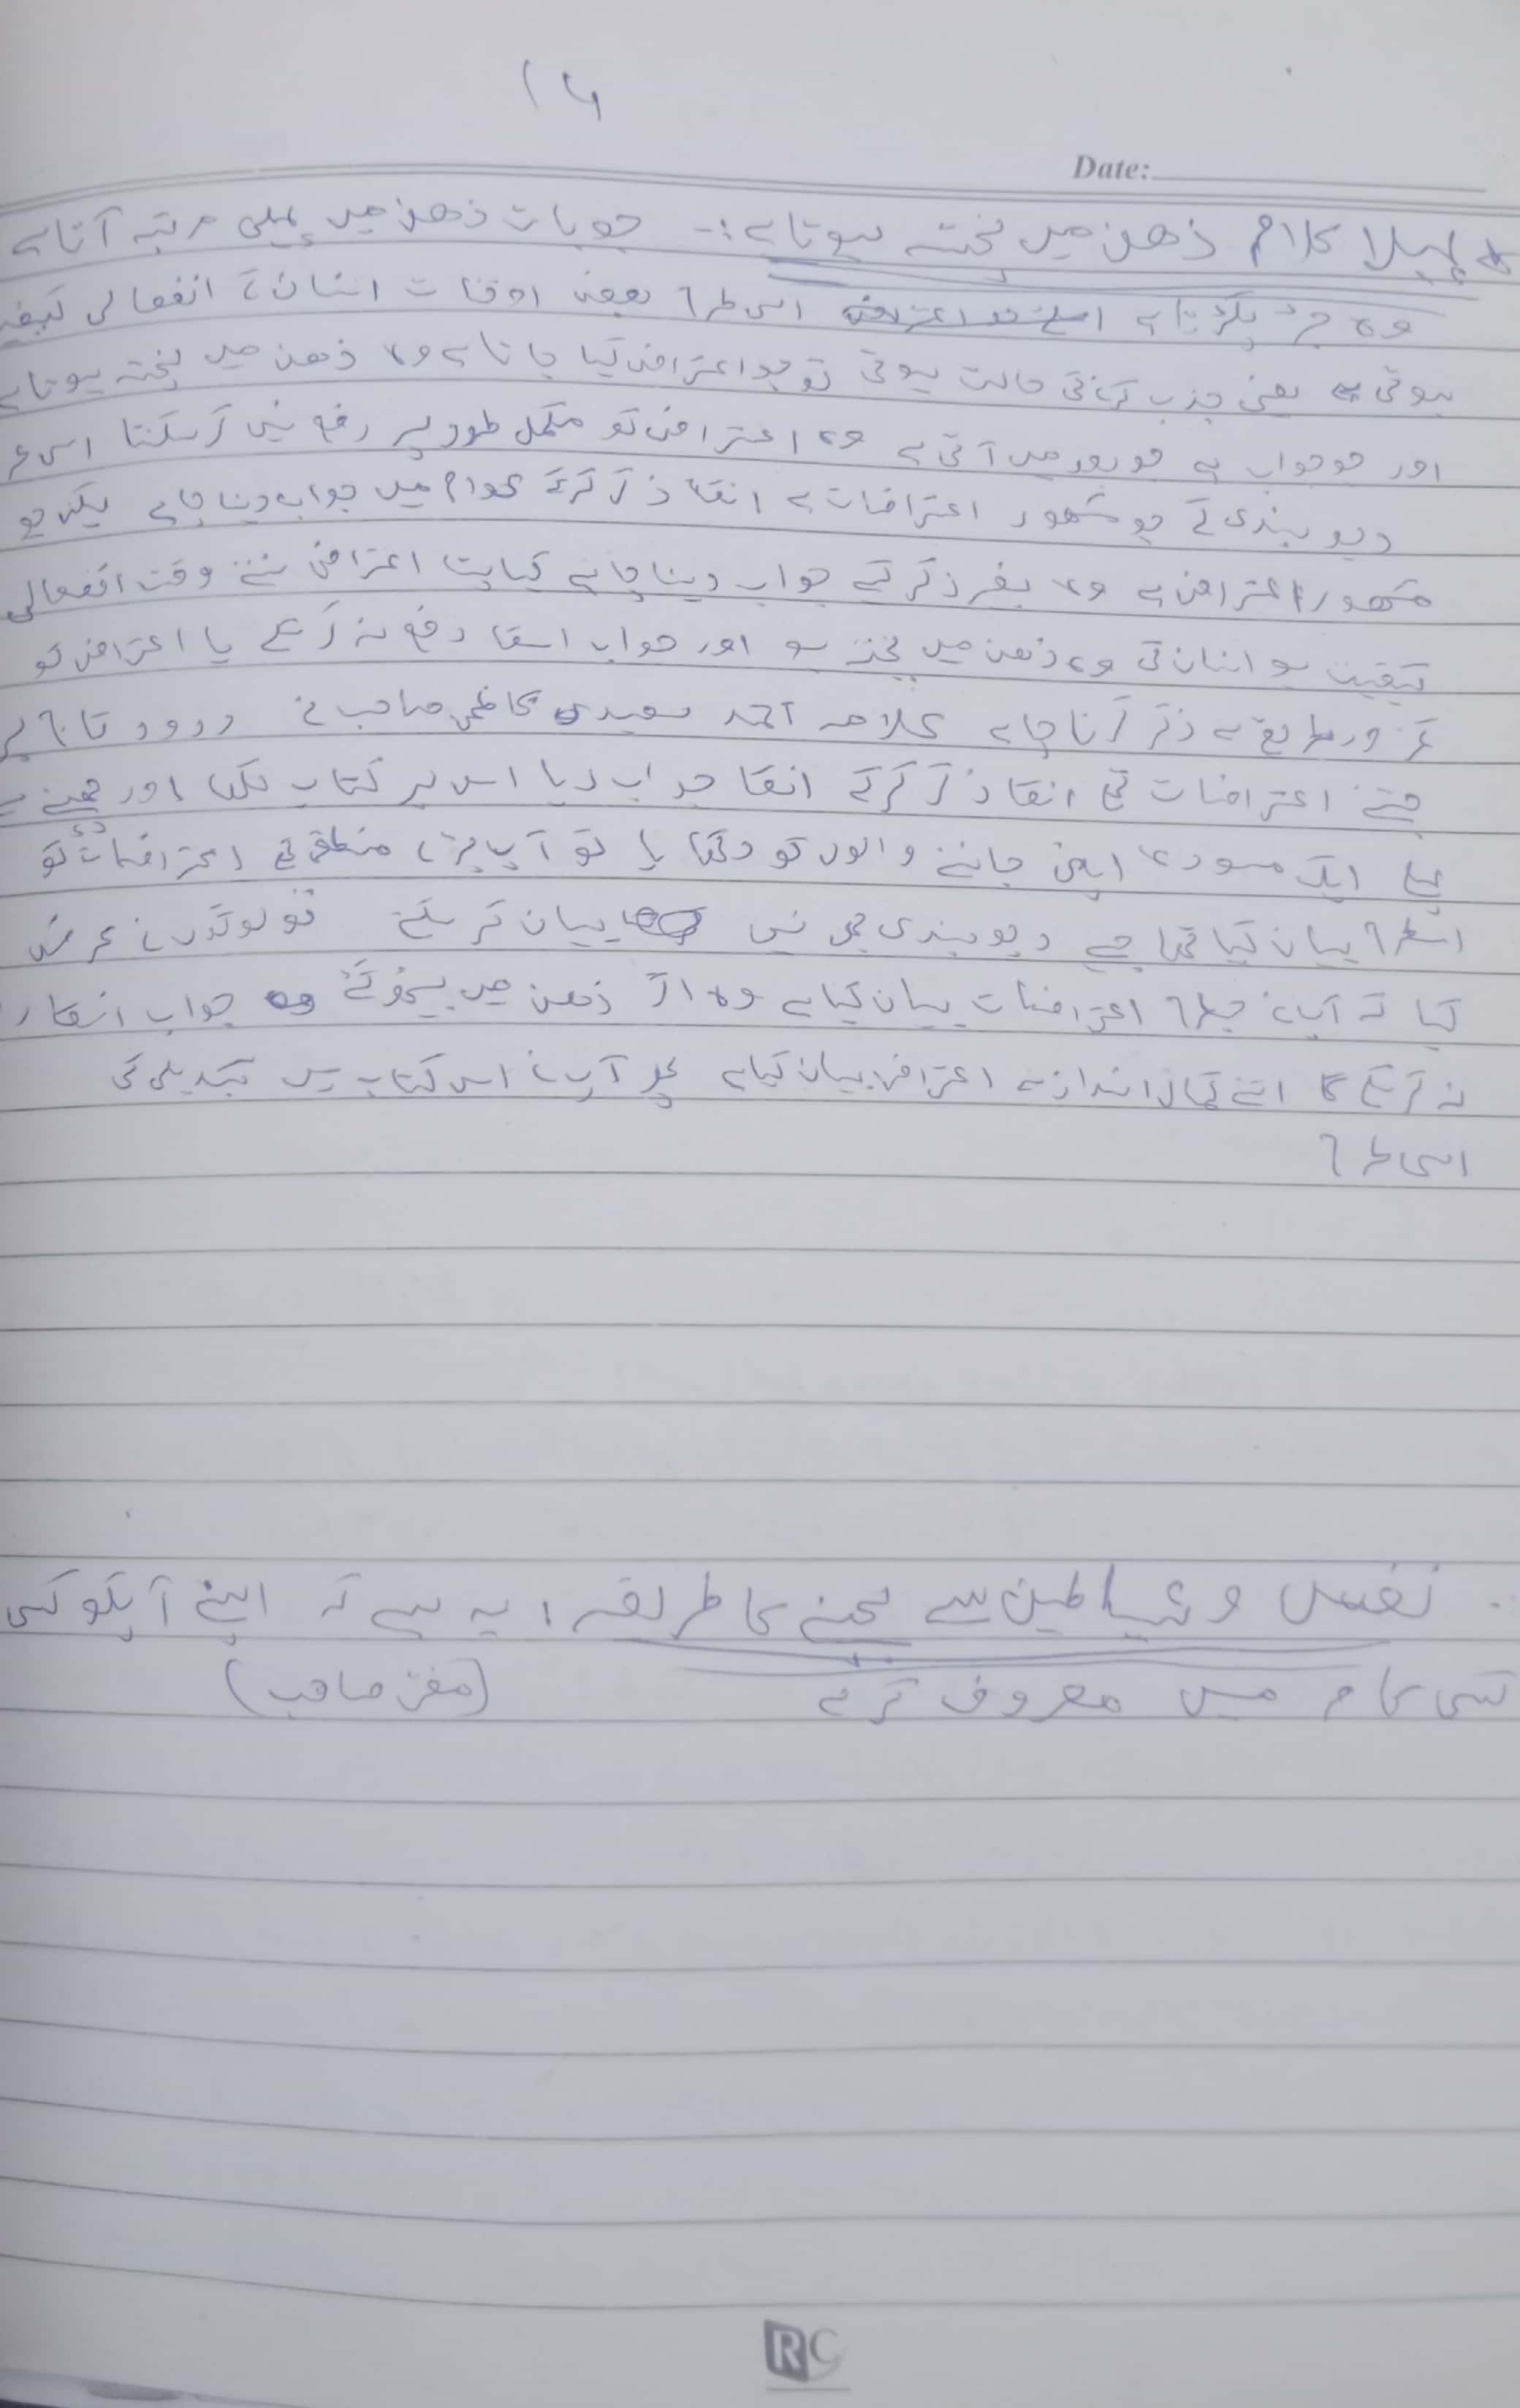 ۱۴
Date:
پہلا کلام ذھن میں پختہ ہوتا ہے :- جو بات ذھن میں پہلی مرتبہ آتا ہے
وہ جڑ پکڑتا ہے اسی طرح بعض اوقات انسان کے انفعالی کیفیت
ہوتی ہے یعنی جذب کرنے کی حالت ہوتی تو جو اعتراض کیا جاتا ہے وہ ذھن میں پختہ ہوتا ہے
اور جو جواب ہے جو بعد میں آتی ہے وہ اعتراض کو مکمل طور پر رفع نہیں کر سکتا اس
دیوبندی کے جو مشھور اعتراضات ہے انکا ذکر کرکے عوام میں جواب دینا چاہے لیکن جو
مشھور اعتراض ہے وہ بغیر ذکر کیے جواب دینا چاہے کیا پتا اعتراض سنتے وقت انفعالی
کیفیت ہو انسان کی وہ ذھن میں پختہ ہو اور جواب اسکا دفع نہ کر سکے یا اعتراض کو
کمزور طریقے سے ذکر کرنا چاہے علامہ احمد سعیدی کاظمی صاحب نے درود تاج پر
جتنے اعتراضات تھے انکا ذکر کرکے انکا جواب دیا اس پر کتاب لکھا اور چھپنے سے
پہلے ایک مسودہ اپنی جاننے والوں کو دکھایا تو آپ بڑے منطقی تھے اعتراضات کو
اسطرح بیان کیا تھا جسے دیوبندی بھی نہیں بیان کر سکتے تو لوگوں نے عرض
کیا کہ آپ نے جسطرح اعتراضات بیان کیا ہے وہ اگر ذھن میں بیٹھ گئے جواب انکار
نہ کر سکے گا اتنے کمال انداز سے اعتراض بیان کیا ہے پھر آپ نے اس کتاب میں تبدیلی کی
اسی طرح
نفس و شیاطین سے بچنے کا طریقہ : یہ ہے کہ اپنے آپکو کسی
کسی کام میں مصروف کرے (مفتی صاحب)
RC